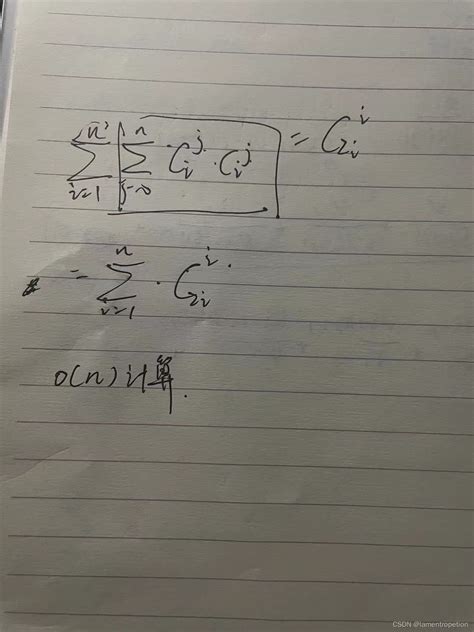 $\sum_{i=1}^{n} \boxed{\sum_{j=0}^{n} C_i^j \cdot C_i^j} = C_{2i}^i$
$= \sum_{i=1}^{n} \cdot C_{2i}^i .$
O(n)计算.
CSDN @lamentropetion